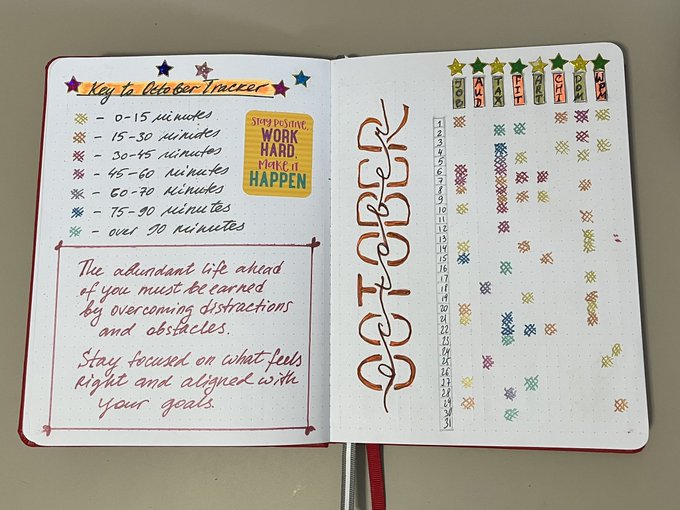 Key to October Tracker
- 0-15 minutes
- 15-30 minutes
- 30-45 minutes
- 45-60 minutes
- 60-70 minutes
- 75-90 minutes
- over 90 minutes
STAY POSITIVE,
WORK
HARD,
MAKE IT
HAPPEN
The abundant life ahead
of you must be earned
by overcoming distractions
and obstacles.
Stay focused on what feels
right and aligned with
your goals.
OCTOBER
october
JOB AUD TAX FIT ART CHI DOM WPM
1
2
3
4
5
6
7
8
9
10
11
12
13
14
15
16
17
18
19
20
21
22
23
24
25
26
27
28
29
30
31